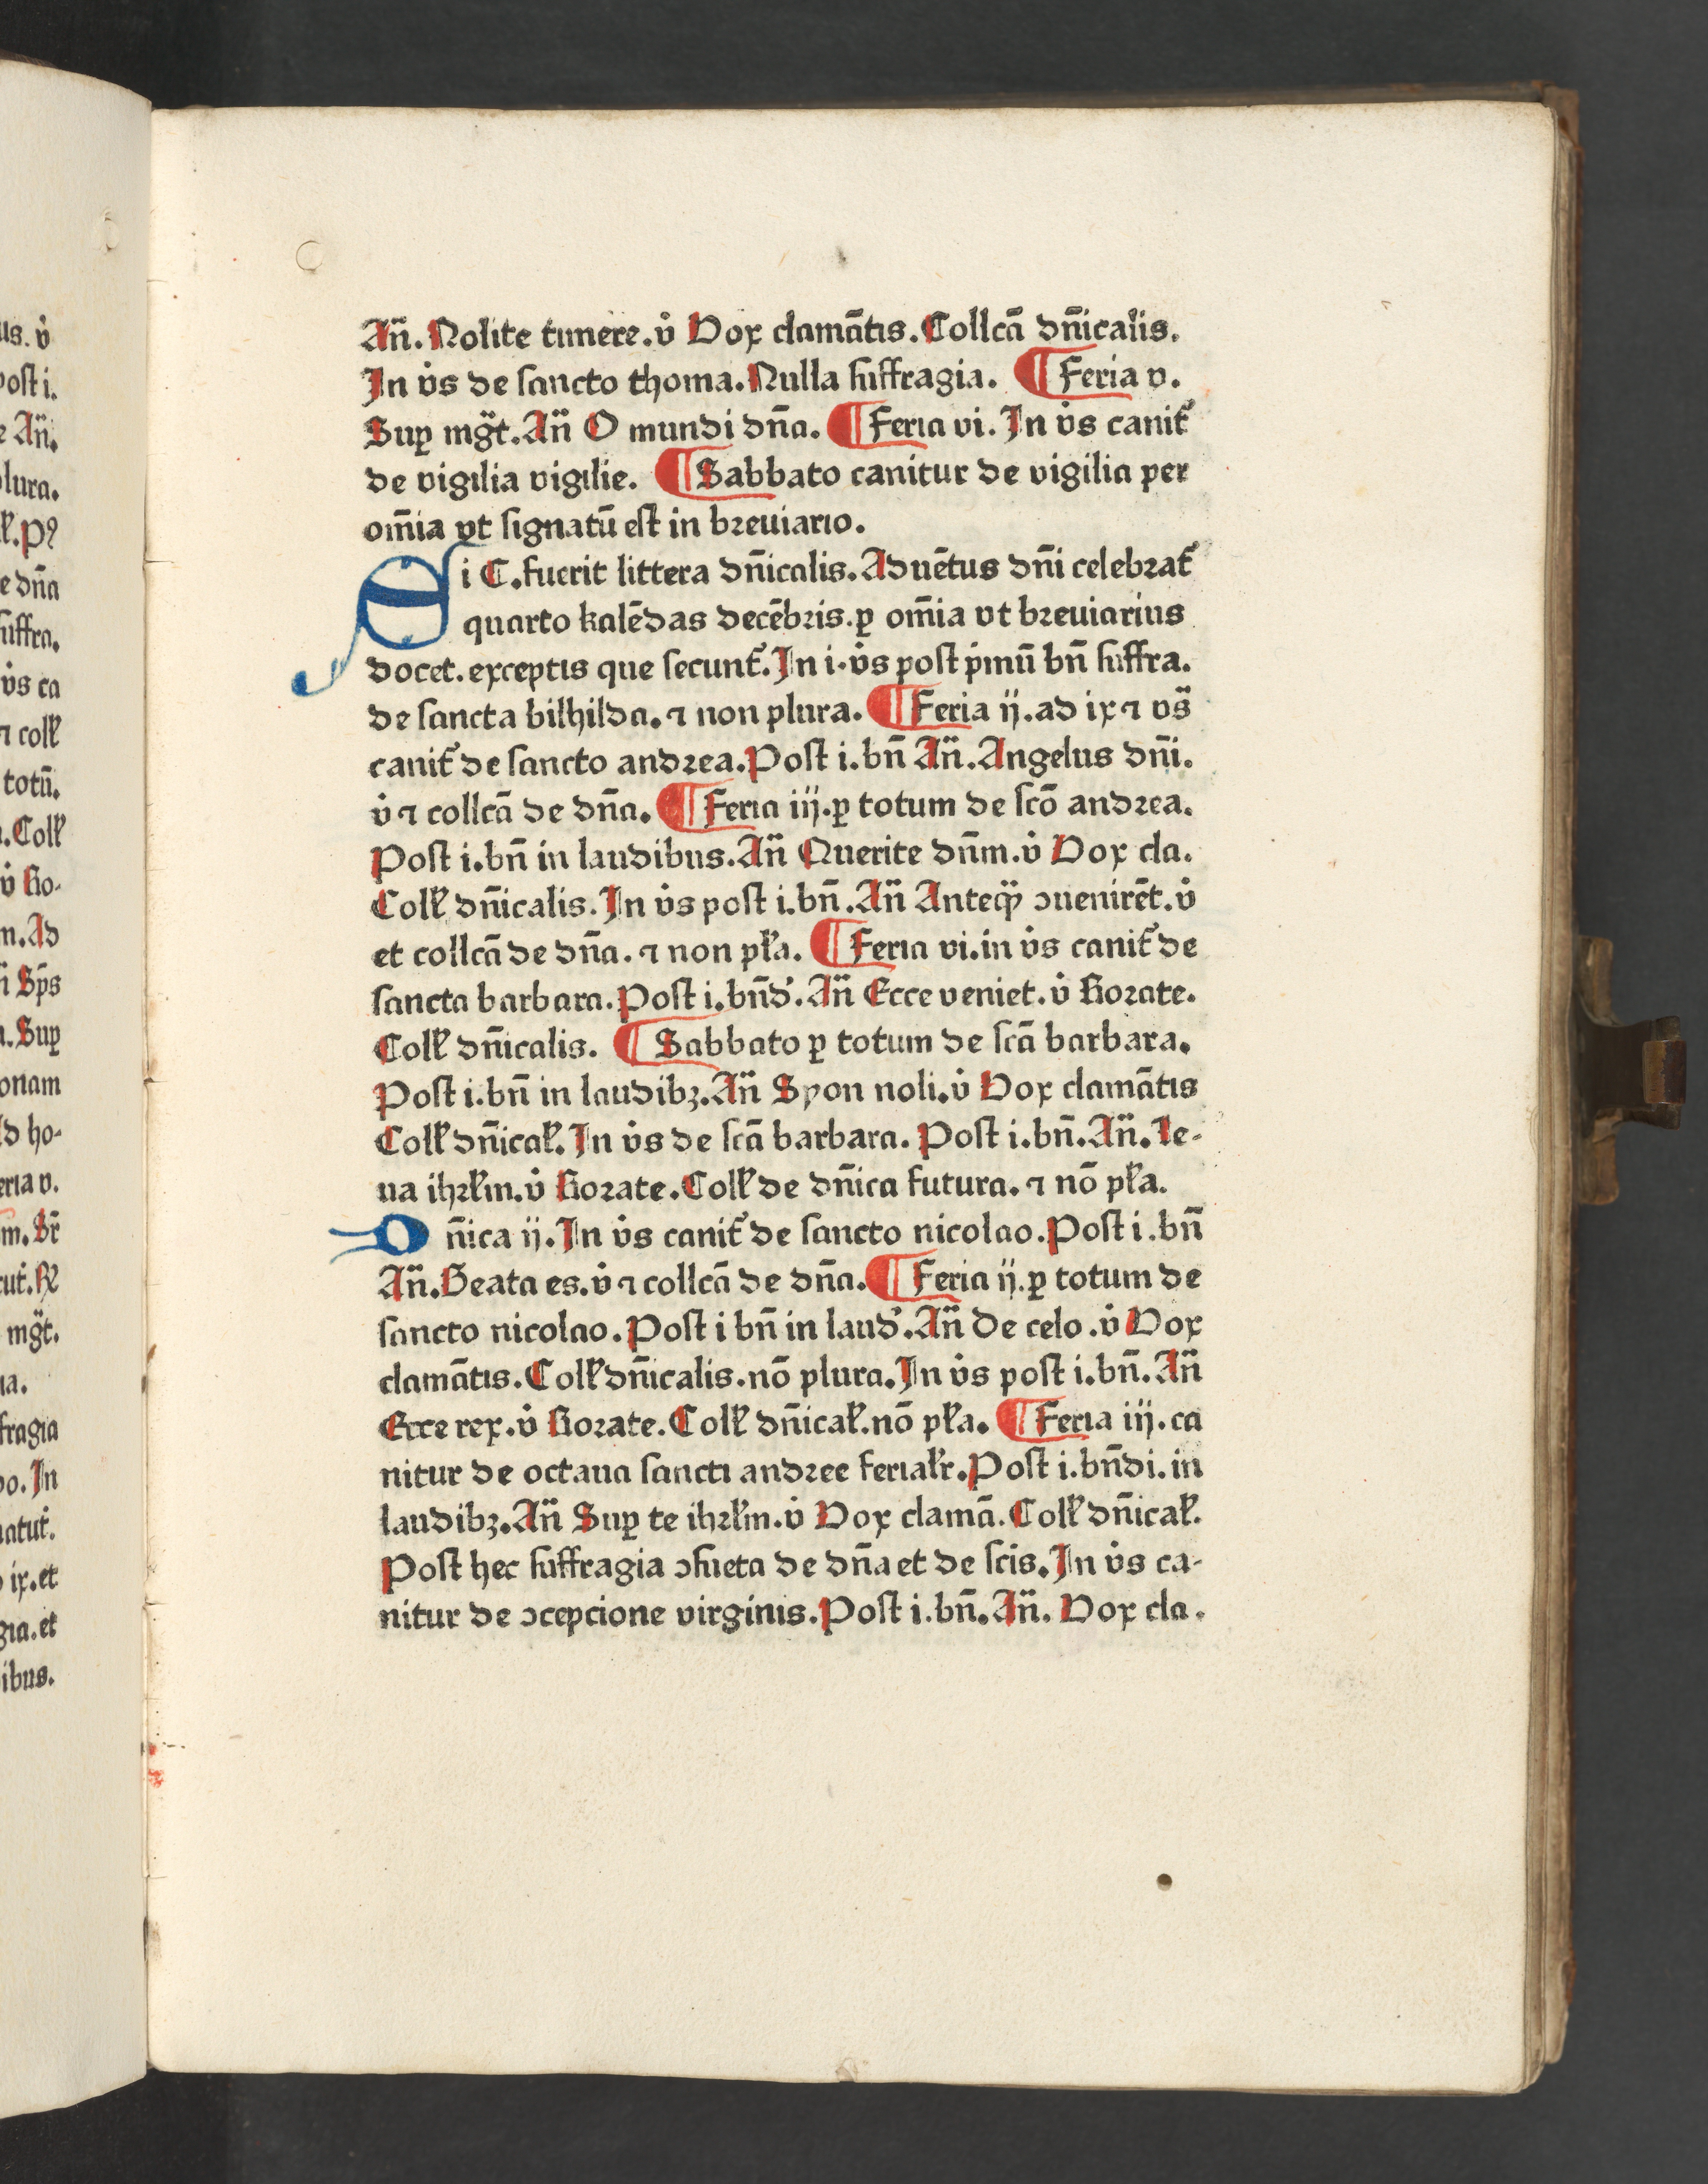 us. v̇
post i.
e An̄.
plura.
ꝉ. Pꝰ
e dn̄a
suffra.
v̇s ca
ꝛ colꝉ
totū.
. Colꝉ
v̇ Ro-
m. Ad
n̄ Sp̄s
a. Suꝑ
onam
Ad ho-
eria v.
m.
mḡt.
ua.
fragia
bo. In
natut᷑.
ix. et
gia. et
ibus.
An̄. Nolite timere. v̇ Vox clamātis. Collcā dn̄icalis.
In v̇s de sancto thoma. Nulla suffragia. ¶ Feria v.
Suꝑ mḡt. An̄ O mundi dn̄a. ¶ Feria vi. In v̇s canit᷑
de vigilia vigilie. ¶ Sabbato canitur de vigilia per
om̄ia vt signatū est in breuiario.
Si C. fuerit littera dn̄icalis. Aduētus dn̄i celebrat᷑
quarto kalēdas decēbris. ꝑ om̄ia vt breuiarius
docet. exceptis que secunt᷑. In i. v̇s post p̍mū bn̄ suffra.
de sancta bilhilda. ⁊ non plura. ¶ Feria ij. ad ix ⁊ vs̄
canit᷑ de sancto andrea. Post i. bn̄ An̄. Angelus dn̄i.
v̇ ⁊ collcā de dn̄a. ¶ Feria iij. ꝑ totum de scō andrea.
Post i. bn̄ in laudibus. An̄ Querite dn̄m. v̇ Vox cla.
Colꝉ dn̄icalis. In v̇s post i. bn̄. An̄ Anteqꝫ̄ ↄuenirēt. v̇
et collcā de dn̄a. ⁊ non pꝉa. ¶ Feria vi. in v̇s canit᷑ de
sancta barbara. Post i. bn̄d᷑. An̄ Ecce veniet. v̇ Rorate.
Colꝉ dn̄icalis. ¶ Sabbato ꝑ totum de scā barbara.
Post i. bn̄ in laudibꝫ. An̄ Syon noli. v̇ Vox clamātis
Colꝉ dn̄icaꝉ. In v̇s de scā barbara. Post i. bn̄. An̄. Le-
ua ihrꝉm. v̇ Rorate. Colꝉ de dn̄ica futura. ⁊ nō pꝉa.
Dn̄ica ij. In v̇s canit᷑ de sancto nicolao. Post i. bn̄
An̄. Beata es. v̇ ⁊ collcā de dn̄a. ¶ Feria ij. ꝑ totum de
sancto nicolao. Post i bn̄ in laud᷑. An̄ De celo. v̇ Vox
clamātis. Colꝉ dn̄icalis. nō plura. In v̇s post i. bn̄. An̄
Ecce rex. v̇ Rorate. Colꝉ dn̄icaꝉ. nō pꝉa. ¶ Feria iij. ca
nitur de octaua sancti andree feriaꝉr. Post i. bn̄di. in
laudibꝫ. An̄ Suꝑ te ihrꝉm. v̇ Vox clamā. Colꝉ dn̄icaꝉ.
Post hec suffragia ↄsueta de dn̄a et de scis. In v̇s ca-
nitur de ↄcepcione virginis. Post i. bn̄. An̄. Vox cla.